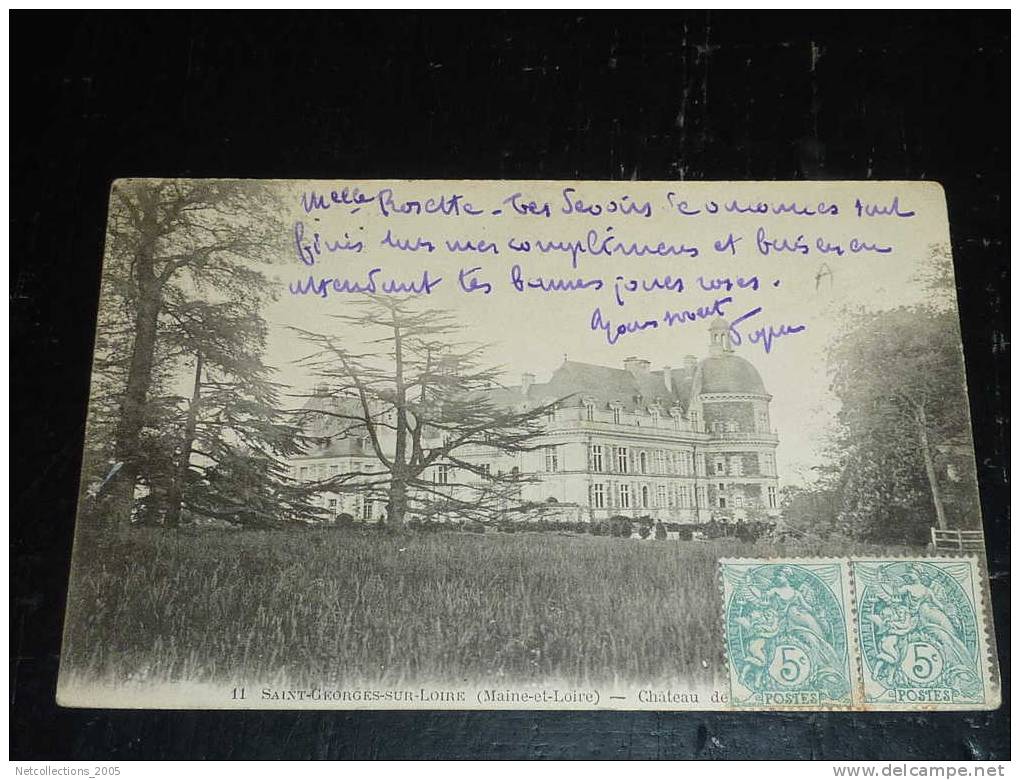 Melle Rosette - tes devoirs économes sont
finis tous mes compliments et baisers en
attendant tes bonnes joues roses.
A
11 SAINT-GEORGES-SUR-LOIRE (Maine-et-Loire) — Château de
5c POSTES 5c POSTES
Netcollections_2005
delcampe.net